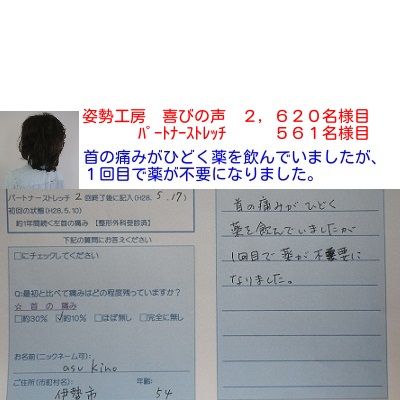 姿勢工房　喜びの声　２，６２０名様目
ﾊﾟｰﾄﾅｰｽﾄﾚｯﾁ　５６１名様目
首の痛みがひどく薬を飲んでいましたが、
１回目で薬が不要になりました。
パートナーストレッチ 2 回終了後に記入(H28. 5. 17)
初回の状態(H28.5.10)
約1年間続く左首の痛み【整形外科受診済】
下記の質問にお答えください
□にチェックしてください
Q:最初と比べて痛みはどの程度残っていますか?
☆ 首 の 痛み
□約30% ☑約10% □ほぼ無し □完全に無し
お名前(ニックネーム可):
asu kino
ご住所(市町村名): 年齢:
伊勢市 54
首の痛みがひどく
薬を飲んでいましたが
1回目で薬が不要に
なりました。